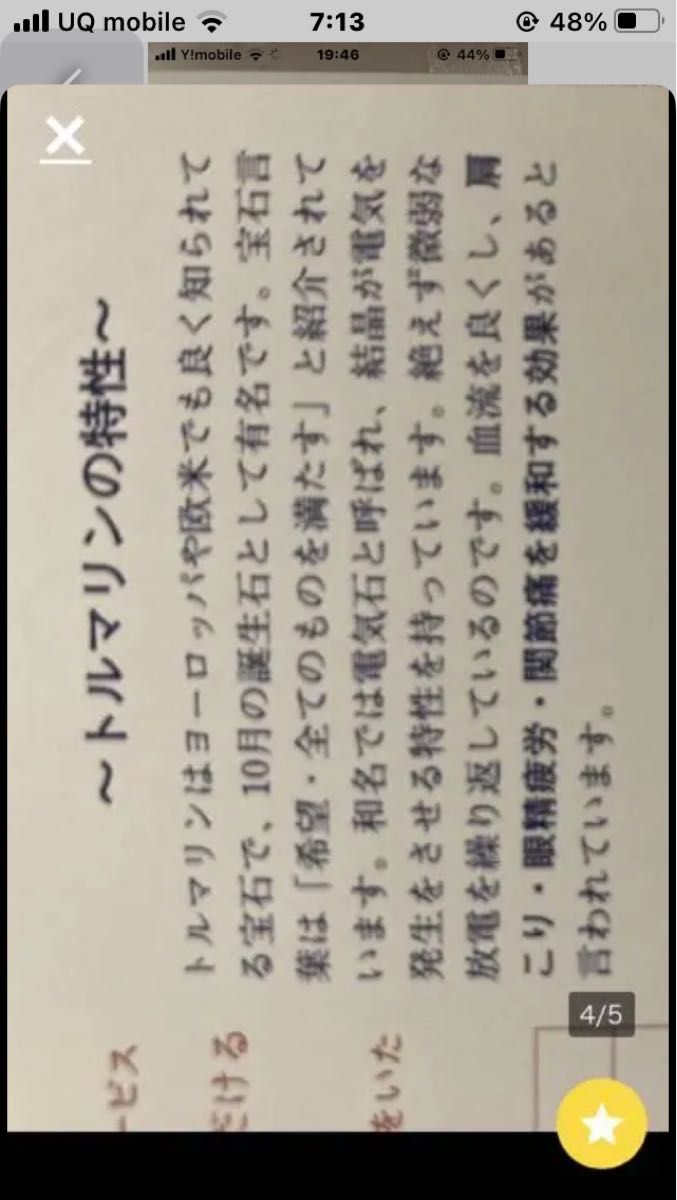 UQ mobile 7:13 48%
Y!mobile 19:46 44%
×
～トルマリンの特性～
トルマリンはヨーロッパや欧米でも良く知られて
る宝石で、10月の誕生石として有名です。宝石言
葉は「希望・全てのものを満たす」と紹介されて
います。和名では電気石と呼ばれ、結晶が電気を
発生をさせる特性を持っています。絶えず微弱な
放電を繰り返しているのです。血流を良くし、肩
こり・眼精疲労・関節痛を緩和する効果があると
言われています。
ービス
だける
をいた
4/5